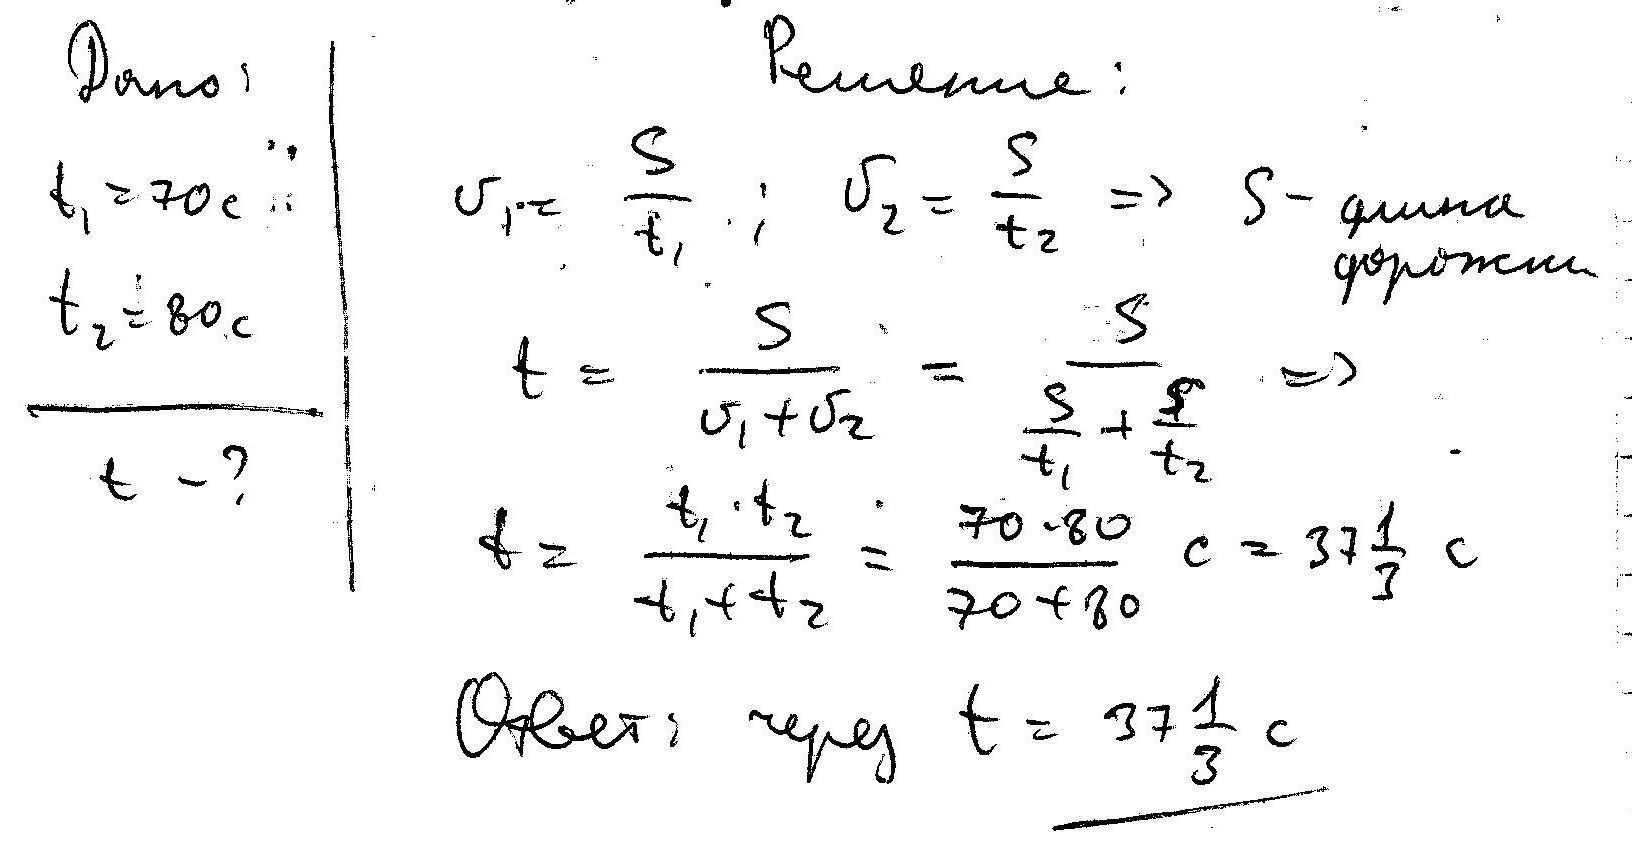 Дано:
t₁ = 70 с
t₂ = 80 с
t - ?
Решение:
υ₁ = S/t₁ ; υ₂ = S/t₂ => S - длина
дорожки
t = S/(υ₁ + υ₂) = S/(S/t₁ + S/t₂) =>
t = (t₁ · t₂)/(t₁ + t₂) = (70 · 80)/(70 + 80) с = 37 1/3 с
Ответ: через t = 37 1/3 с